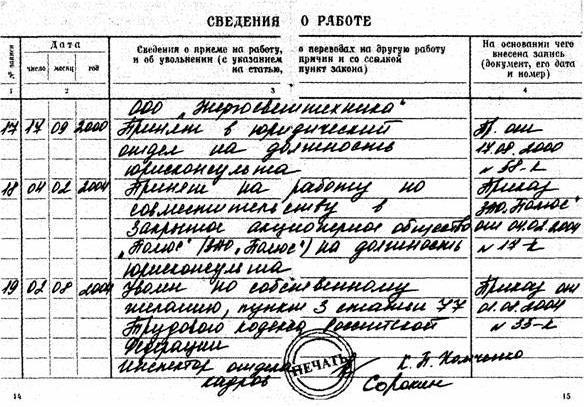 СВЕДЕНИЯ О РАБОТЕ
№ записи
Дата
Сведения о приеме на работу, о переводах на другую работу
и об увольнении (с указанием причин и со ссылкой
на статью, пункт закона)
На основании чего
внесена запись
(документ, его дата
и номер)
число месяц год
1 2 3 4
ООО "Энергосветтехника"
17 17 09 2000 Принят в юридический Пр. от
отдел на должность 17.08.2000
юрисконсульта № 58-к
18 04 02 2004 Принят на работу по Приказ
совместительству в ЗАО "Полюс"
Закрытое акционерное общество от 04.02.2004
"Полюс" (ЗАО "Полюс") на должность № 17-к
юрисконсульта
19 02 08 2004 Уволен по собственному Приказ от
желанию, пункт 3 статьи 77 01.08.2004
Трудового кодекса Российской № 33-к
Федерации
Инспектор отдела
кадров
ПЕЧАТЬ
Сорокин
14 15